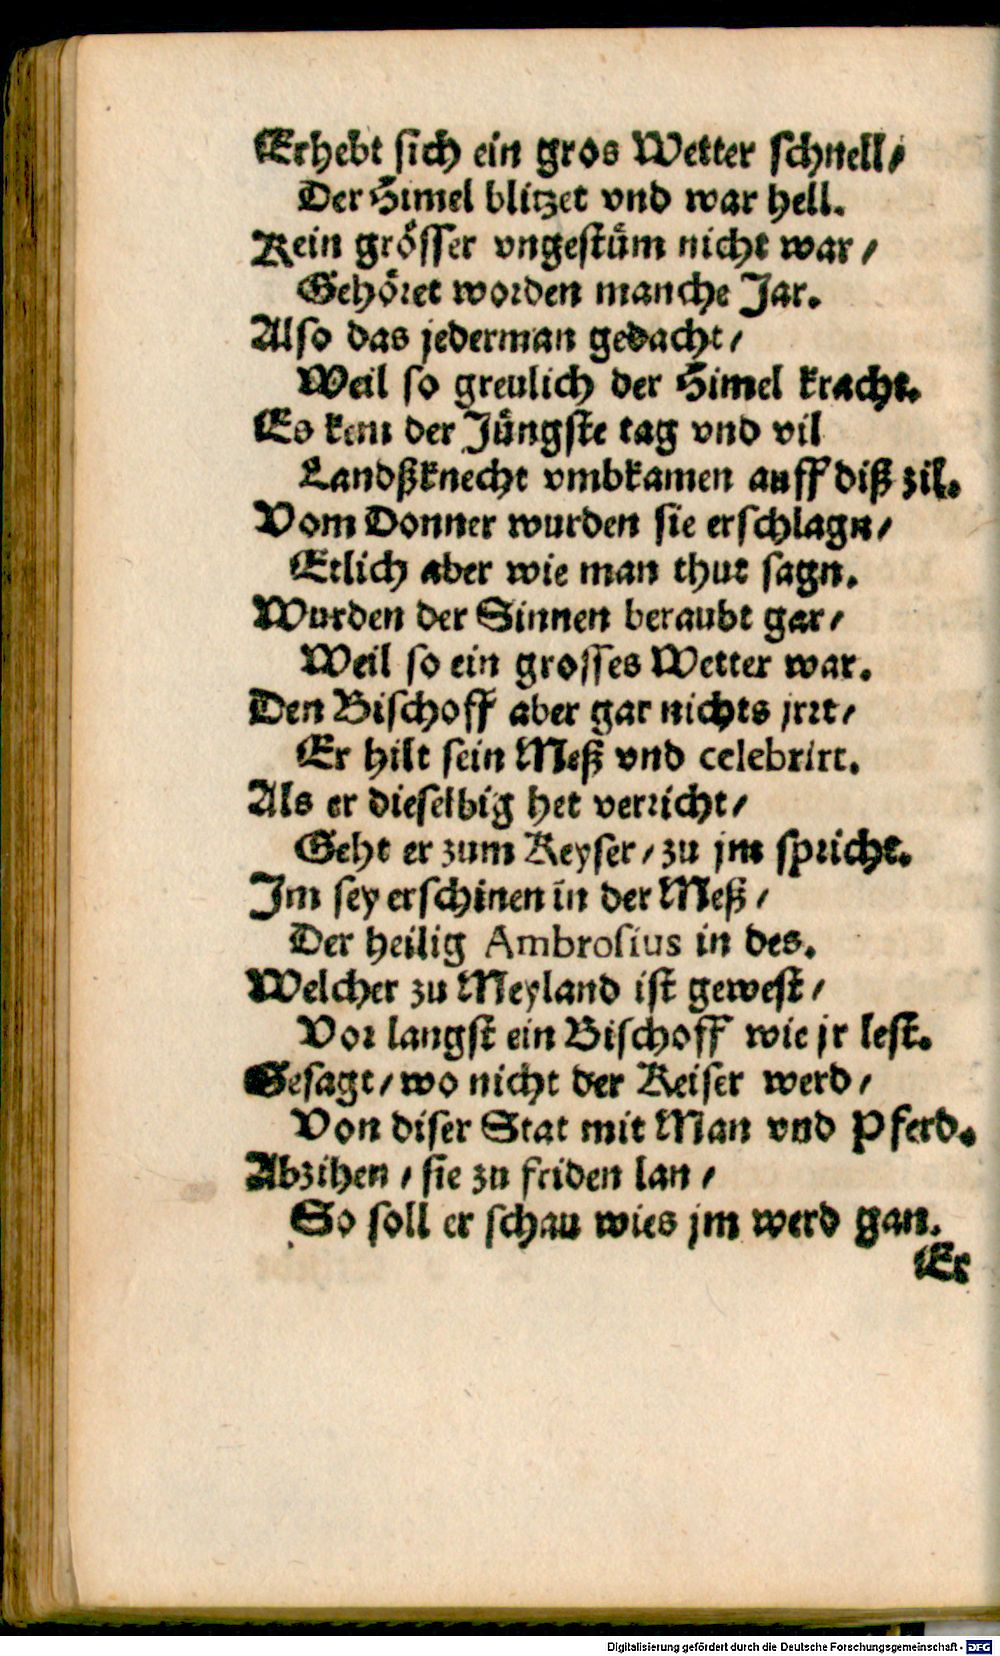 Erhebt sich ein gros Wetter schnell/
Der Himel blitzet vnd war hell.
Kein grösser vngestüm nicht war/
Gehöret worden manche Jar.
Also das jederman gedacht/
Weil so greulich der Himel kracht.
Es kem der Jüngste tag vnd vil
Landßknecht vmbkamen auff diß zil.
Vom Donner wurden sie erschlagn/
Etlich aber wie man thut sagn.
Wurden der Sinnen beraubt gar/
Weil so ein grosses Wetter war.
Den Bischoff aber gar nichts jrrt/
Er hilt sein Meß vnd celebrirt.
Als er dieselbig het verricht/
Geht er zum Keyser/ zu jm spricht.
Im sey erschinen in der Meß/
Der heilig Ambrosius in des.
Welcher zu Meyland ist gewest/
Vor langst ein Bischoff wie jr lest.
Gesagt/ wo nicht der Keiser werd/
Von diser Stat mit Man vnd Pferd.
Abzihen/ sie zu friden lan/
So soll er schau wies jm werd gan.
Er
Digitalisierung gefördert durch die Deutsche Forschungsgemeinschaft - DFG